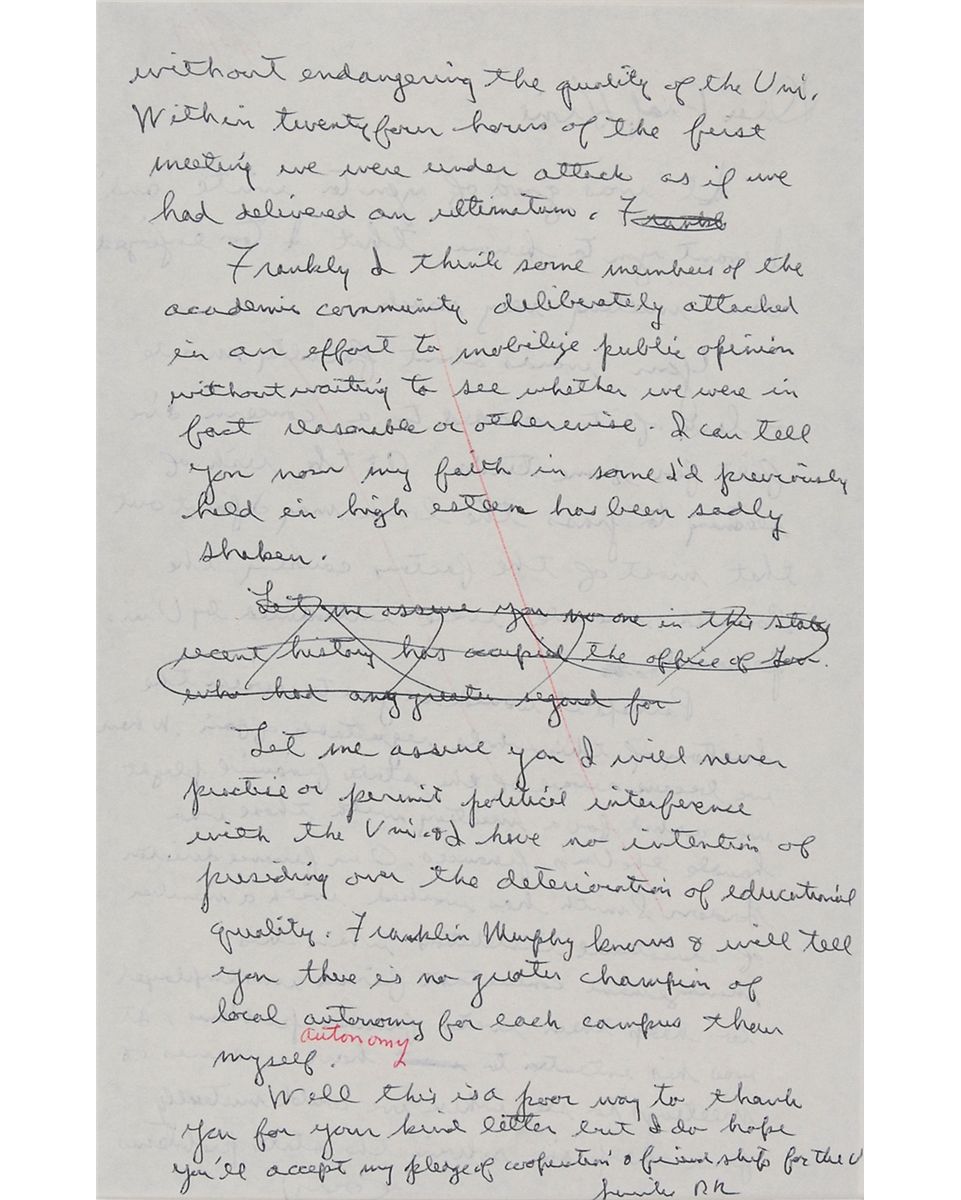 without endangering the quality of the Uni.
Within twenty four hours of the first
meeting we were under attack as if we
had delivered an ultimatum. Frankl
Frankly I think some members of the
academic community deliberately attacked
in an effort to mobilize public opinion
without waiting to see whether we were in
fact reasonable or otherwise. I can tell
you now my faith in some I'd previously
held in high esteem has been sadly
shaken.
Let me assure you no one in this states
recent history has occupied the office of Gov.
who had any greater regard for
Let me assure you I will never
practice or permit political interference
with the Uni. & I have no intention of
presiding over the deterioration of educational
quality. Franklin Murphy knows & will tell
you there is no greater champion of
local autonomy for each campus than
autonomy
myself.
Well this is a poor way to thank
you for your kind letter but I do hope
you'll accept my pledge of cooperation & friendship for the U
RR